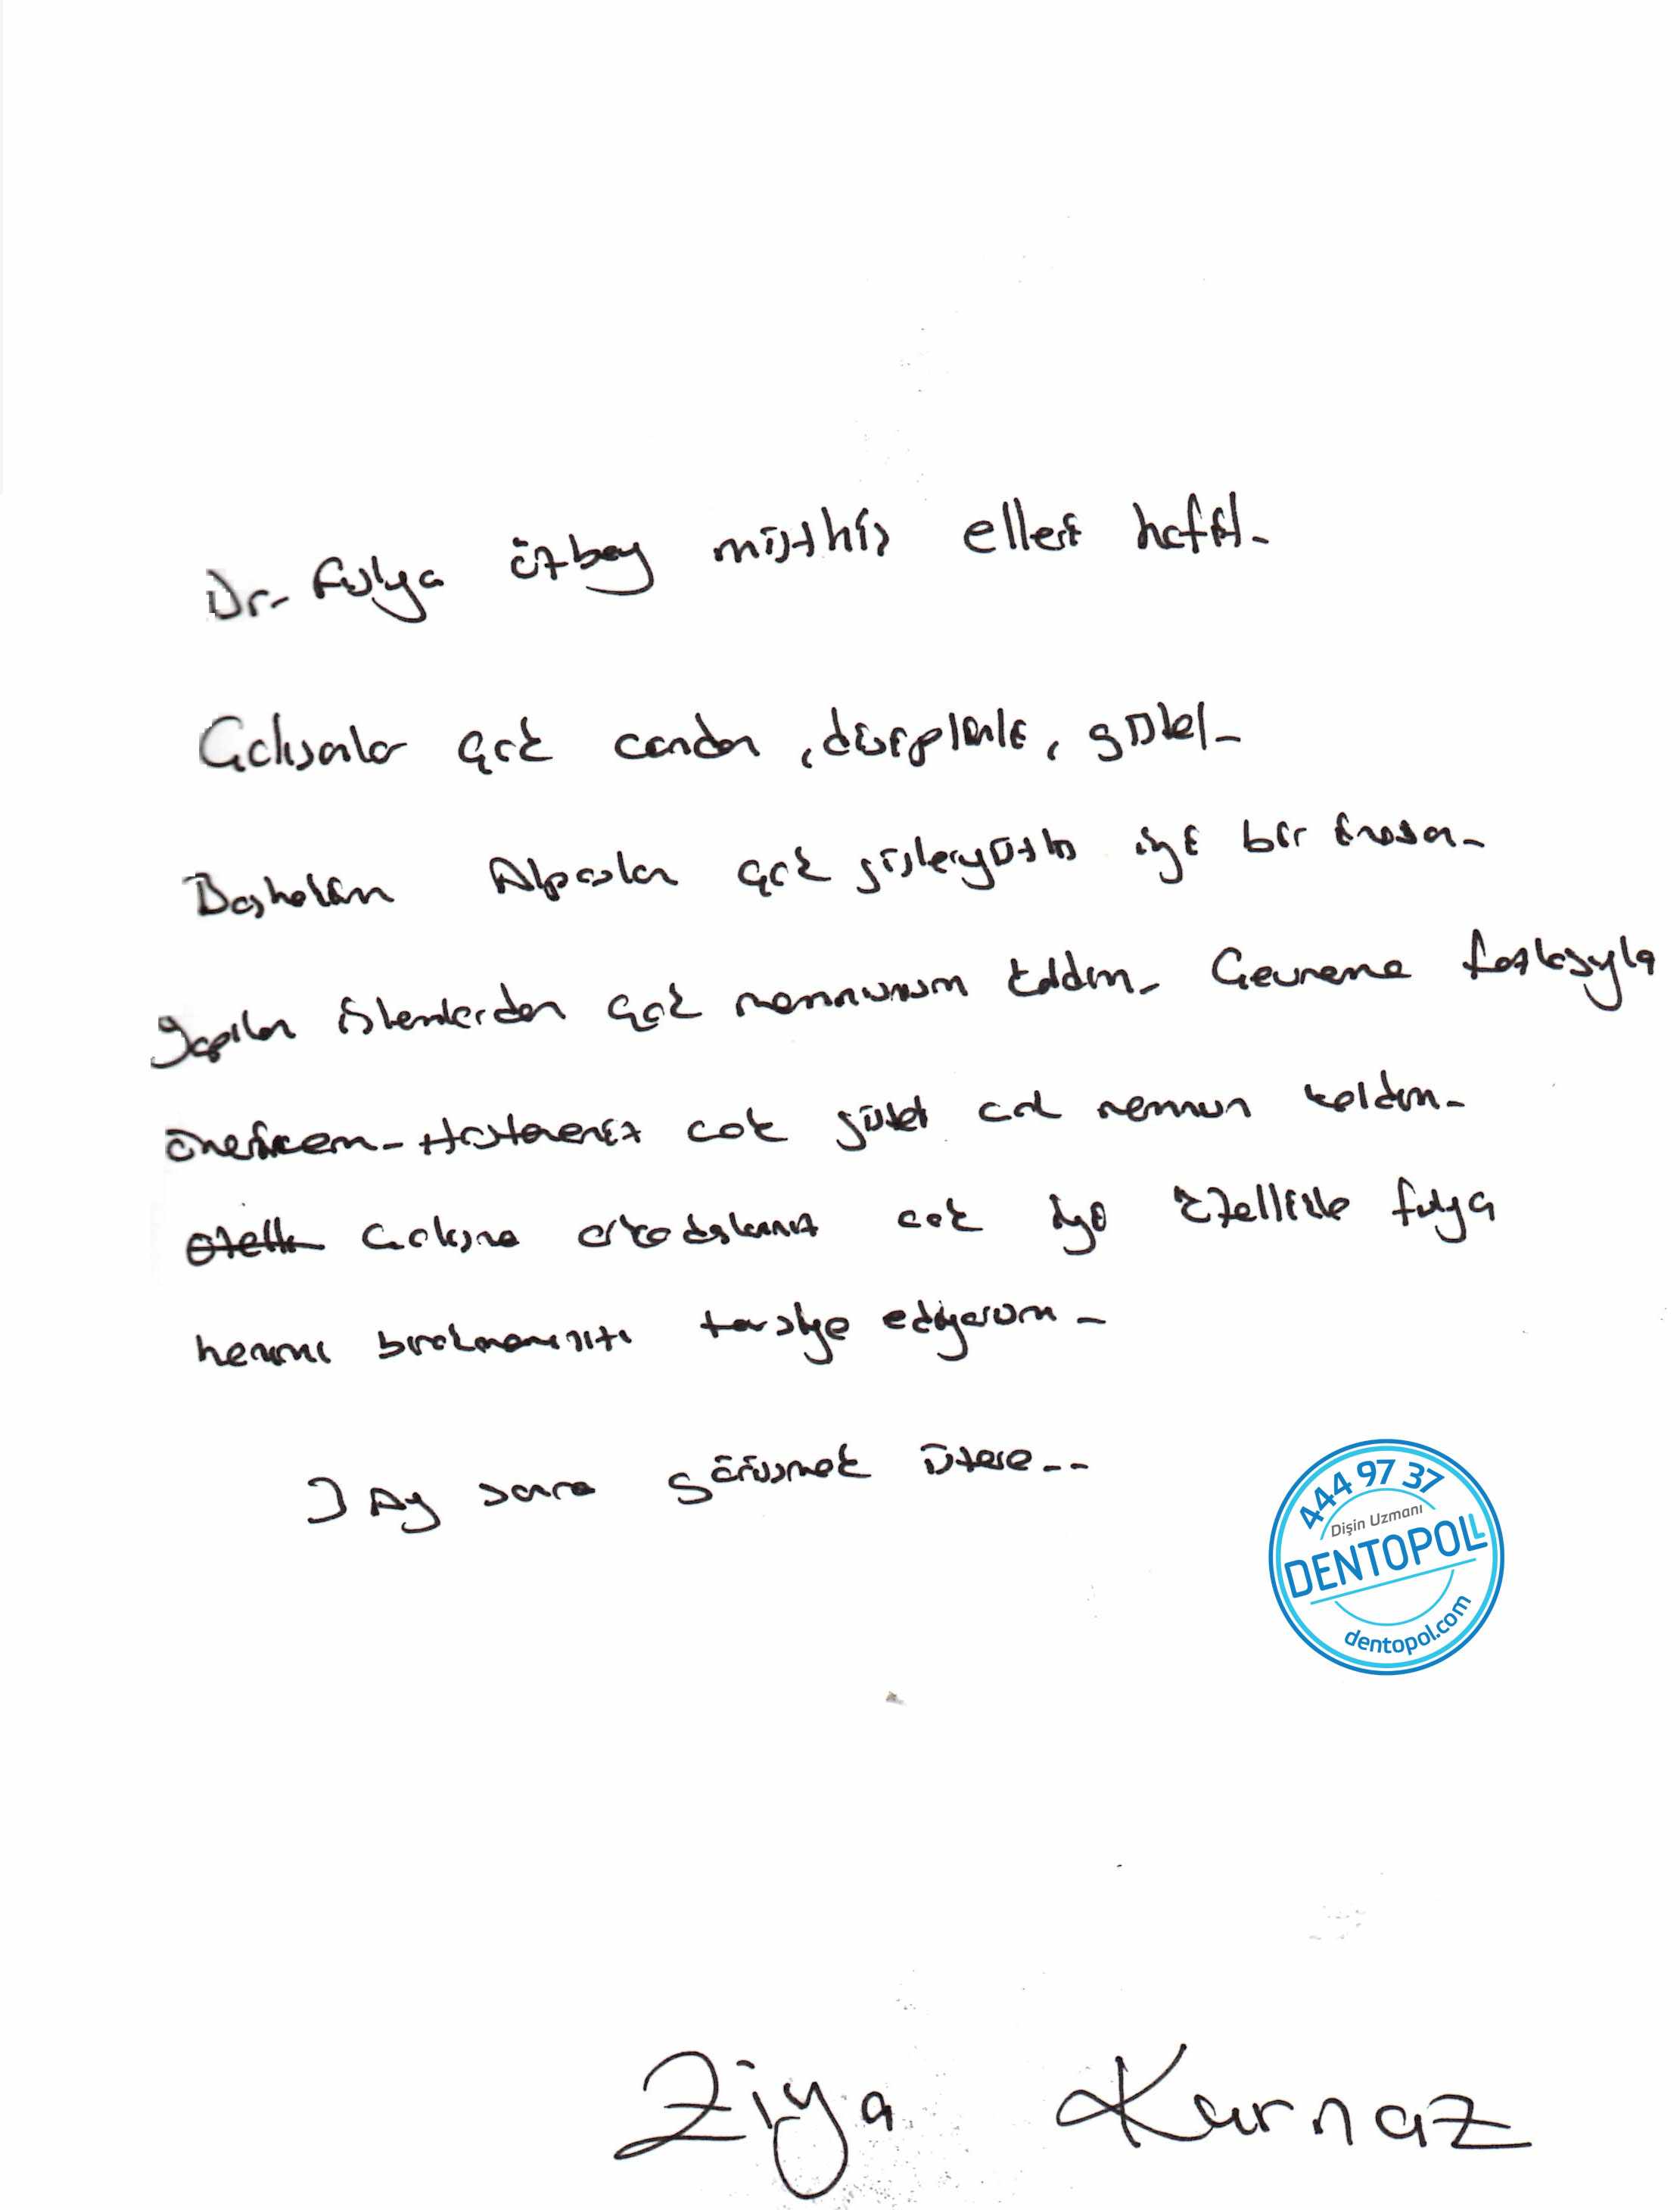 Dr. Fulya özbay müthiş elleri hafif.
Çalışanlar çok candan, disiplinli, güzel.
Başhekim Alpaslan çok güleryüzlü iyi bir insan.
Yapılan işlemlerden çok memnunum kaldım. Çevreme fazlasıyla
önericem. Hastaneniz cok güzel cok memnun kaldım.
Calışma arkadaşlarınız cok iyi özellikle fulya
hanımı bırakmamanızı tavsiye ediyorum.
Ay sonra görüşmek üzere..
444 97 37
Dişin Uzmanı
DENTOPOL
dentopol.com
Ziya Kurnaz